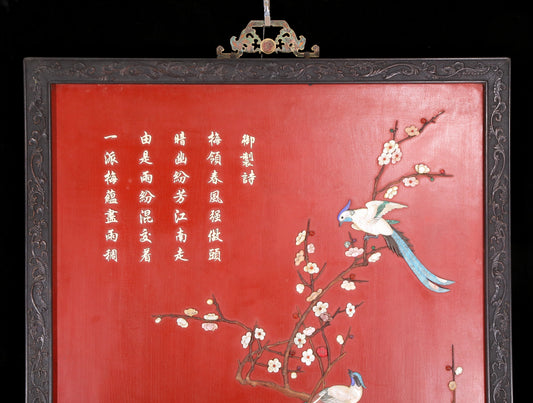 御製詩
梅領春風强做頭
晴幽紛芳江南走
由是兩紛混交着
一派梅蘊盡兩稠